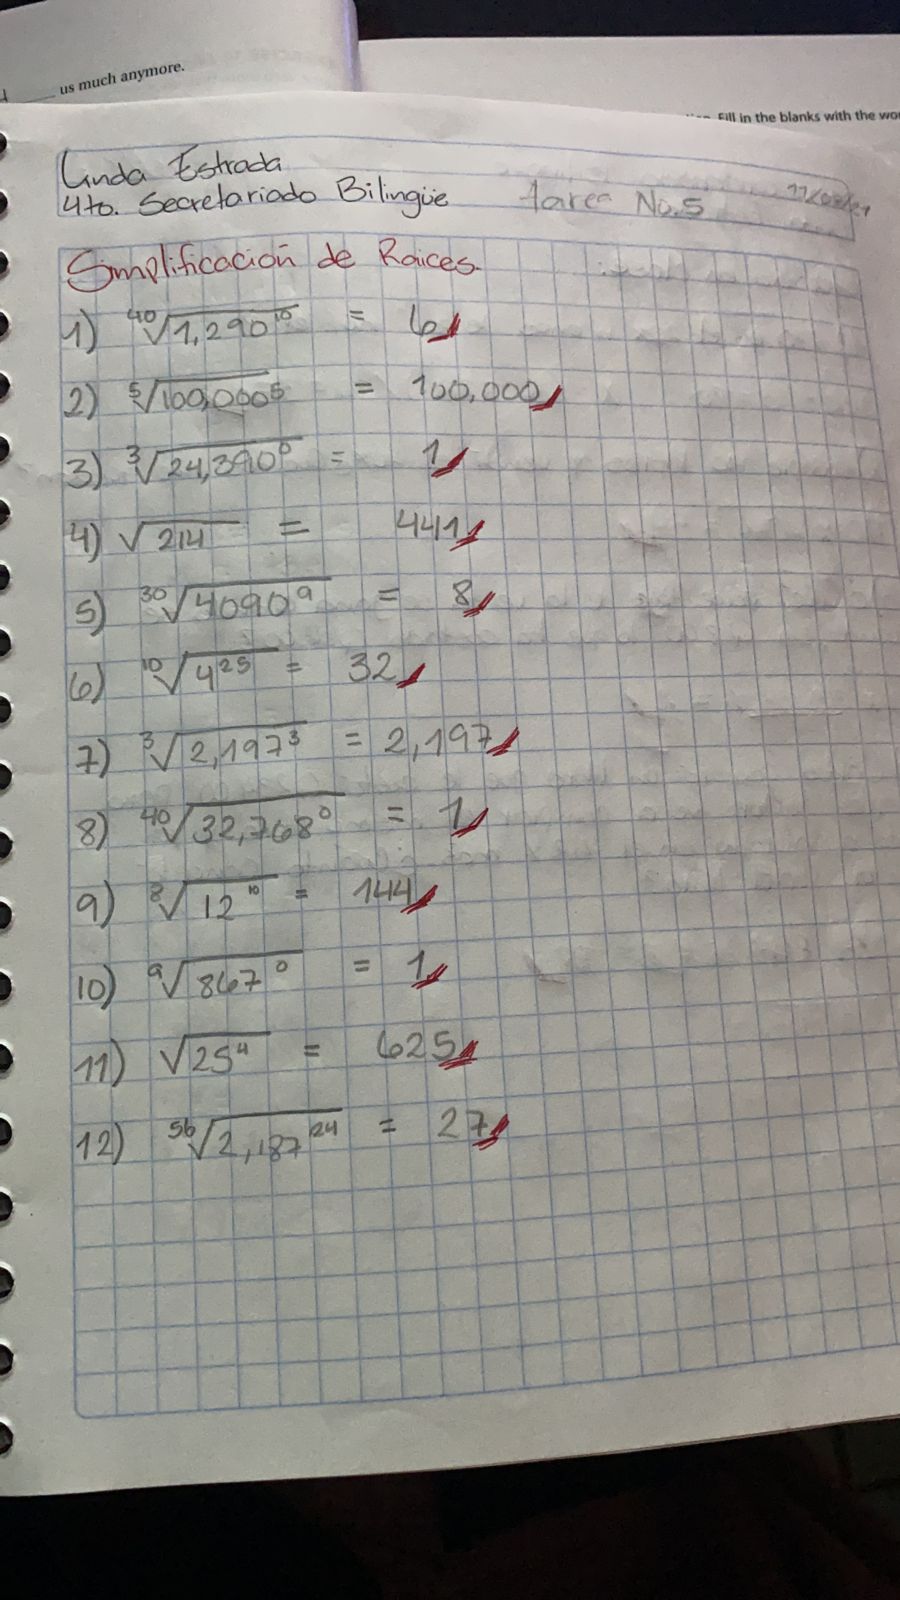 us much anymore.
Fill in the blanks with the
Linda Estrada
4to. Secretariado Bilingüe
tarea No.5
Simplificación de Raíces.
1) ⁴⁰√1,290¹⁰ = 6
2) ⁵√100,000⁵ = 100,000
3) ³√24,390⁰ = 1
4) √214 = 441
5) ³⁰√4090⁹ = 8
6) ¹⁰√4²⁵ = 32
7) ³√2,197³ = 2,197
8) ⁴⁰√32,768⁰ = 1
9) ⁸√12¹⁰ = 144
10) ⁹√867⁰ = 1
11) √25⁴ = 625
12) ⁵⁶√2,187²⁴ = 27